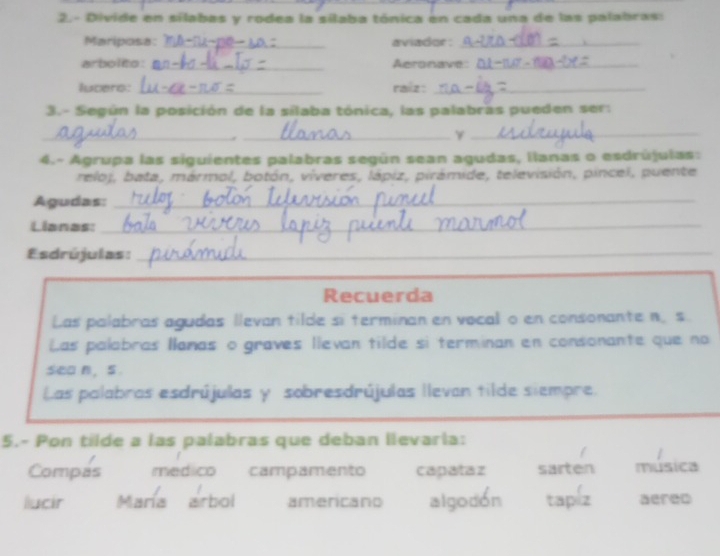 2.- Divide en sílabas y rodea la sílaba tónica en cada una de las palabras:
Mariposa: ma-ri-po-sa= aviador: a-via-dor=
arbolito: ar-bo-li-to= Aeronave: ae-ro-na-ve=
lucero: lu-ce-ro= raíz: ra-iz=
3.- Según la posición de la sílaba tónica, las palabras pueden ser:
agudas, llanas y esdrujula
4.- Agrupa las siguientes palabras según sean agudas, llanas o esdrújulas:
reloj, bata, mármol, botón, víveres, lápiz, pirámide, televisión, pincel, puente
Agudas: reloj botón televisión pincel
Llanas: bata viveres lapiz puente marmol
Esdrújulas: pirámide
Recuerda
Las palabras agudas llevan tilde si terminan en vocal o en consonante n, s.
Las palabras llanas o graves llevan tilde si terminan en consonante que no
sea n, s.
Las palabras esdrújulas y sobresdrújulas llevan tilde siempre.
5.- Pon tilde a las palabras que deban llevarla:
Compás médico campamento capataz sartén música
lucir María árbol americano algodón tapíz aereo